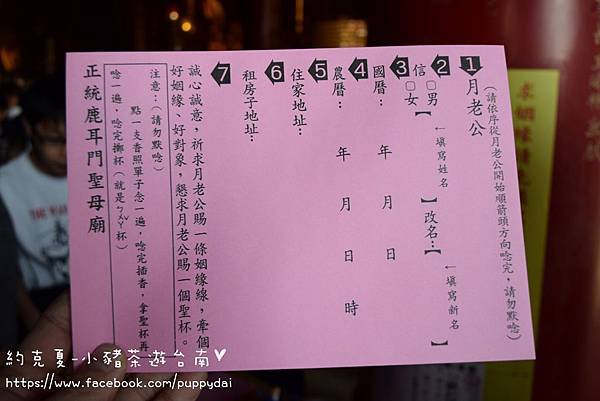 (請依序從月老公開始順箭頭方向唸完,請勿默唸)
1 月老公
2 信 □男 □女【 ←填寫姓名 】改名:【 ←填寫新名 】
3 國曆: 年 月 日
4 農曆: 年 月 日 時
5 住家地址:
6 租房子地址:
7 誠心誠意,祈求月老公賜一條姻緣線,牽個
好姻緣、好對象,懇求月老公賜一個聖杯。
注意:(請勿默唸)
點一支香照單子念一遍,唸完插香,拿聖杯再
唸一遍,唸完擲杯(就是ㄅㄨㄚˊ杯)
正統鹿耳門聖母廟
約克夏-小豬茶遊台南♥
https://www.facebook.com/puppydai